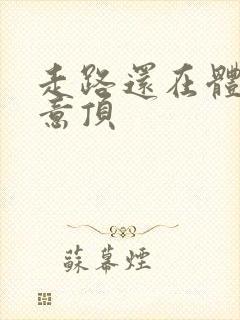 走路還在體
意頂
蘇幕煙